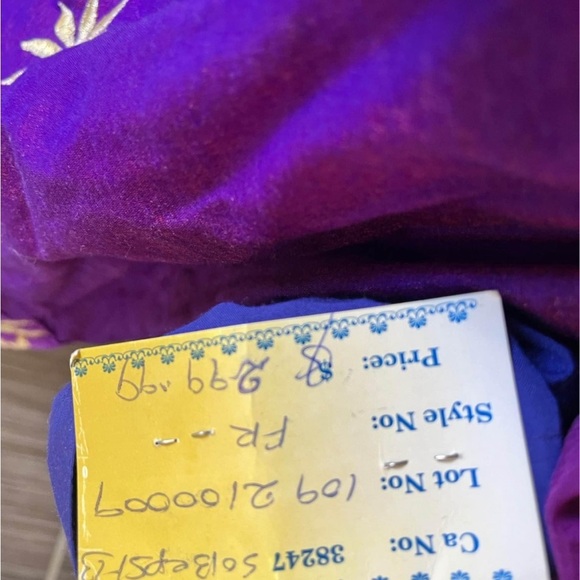 Ca No: 38247
Lot No: 1092100009
Style No: FR --
Price: $ 299.99